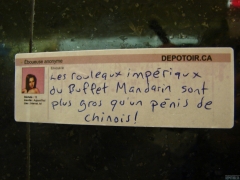 Douceur anonyme
DEPOTOIR.CA
Les rouleaux impériaux
du Buffet Mandarin sont
plus gros qu'un pénis de
chinois!